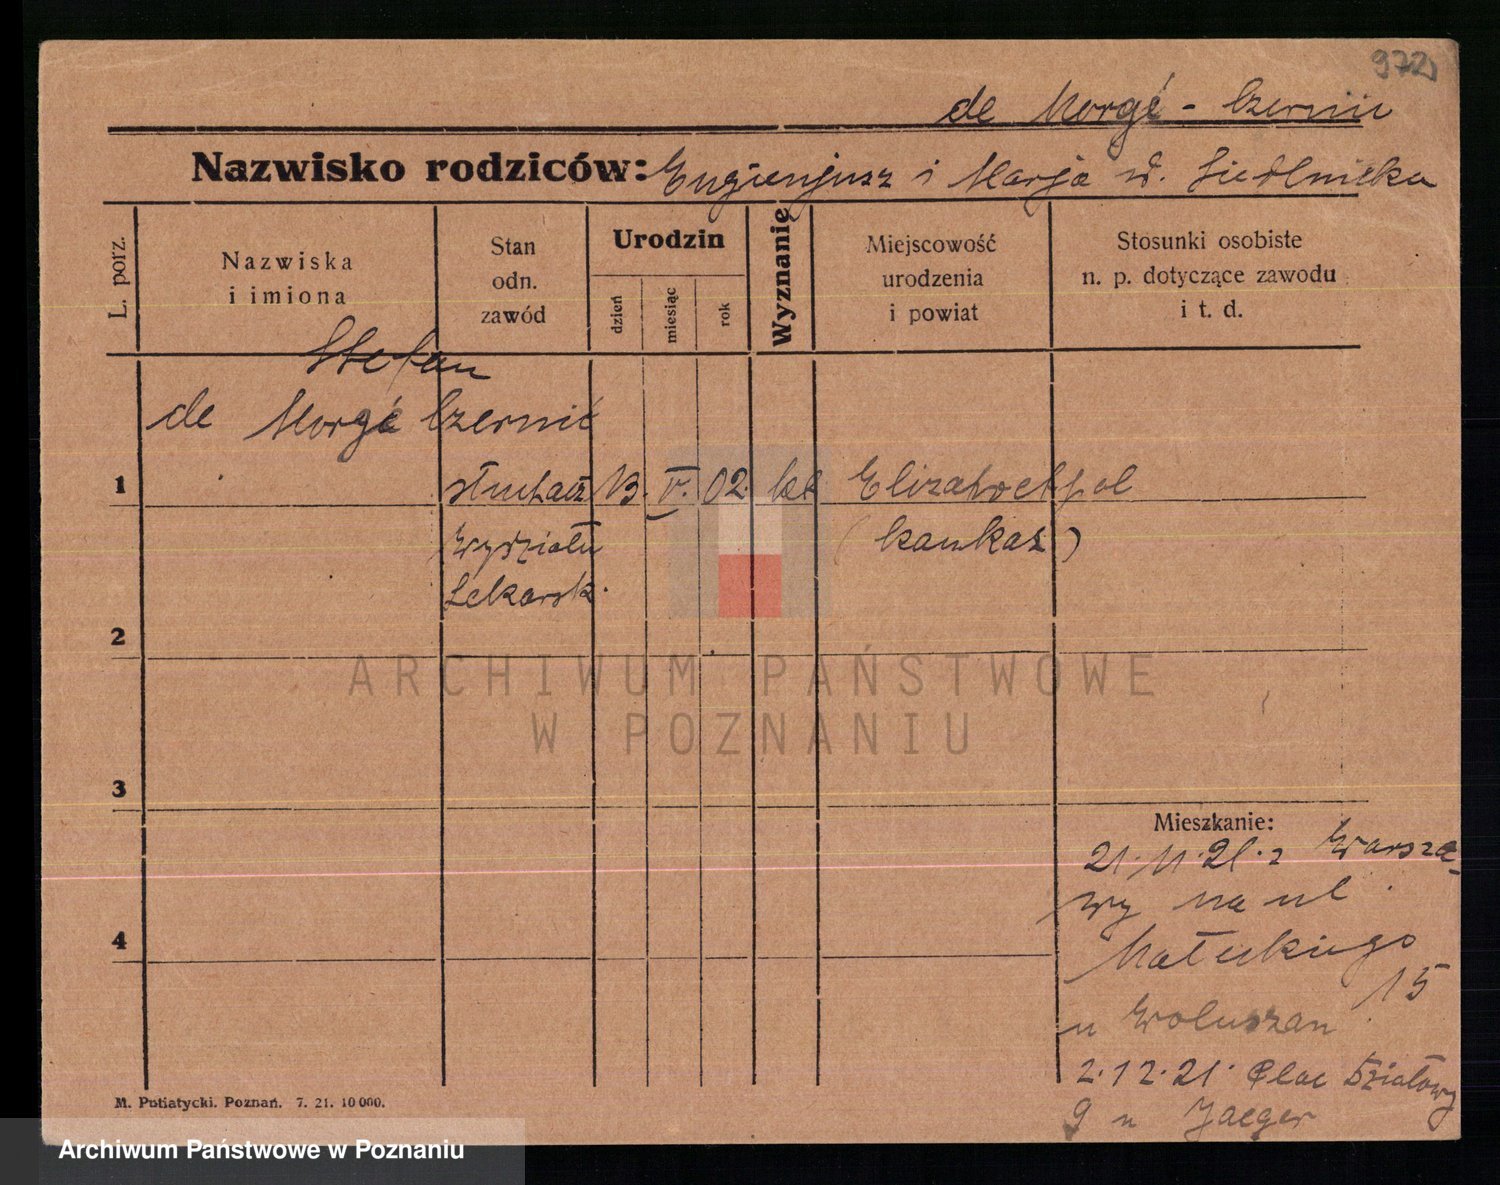 972
de Morgé - Czernić
Nazwisko rodziców: Eugienjusz i Marja d. Siedlnicka
L. porz.
Nazwiska
i imiona
Stan
odn.
zawód
Urodzin
dzień
miesiąc
rok
Wyznanie
Miejscowość
urodzenia
i powiat
Stosunki osobiste
n. p. dotyczące zawodu
i t. d.
Stefan
de Morgé Czernić
1 słuchacz 13. V. 02. kt Elizabetpol
Wydziału (Kaukaz)
Lekarsk.
2
ARCHIWUM PAŃSTWOWE
W POZNANIU
3
Mieszkanie:
21.11.21. z Warsza-
wy na ul.
4 Małeckiego
15
u Woluszan
2.12.21. Plac Działowy
9 u Jaeger
M. Putiatycki. Poznań. 7. 21. 10 000.
Archiwum Państwowe w Poznaniu